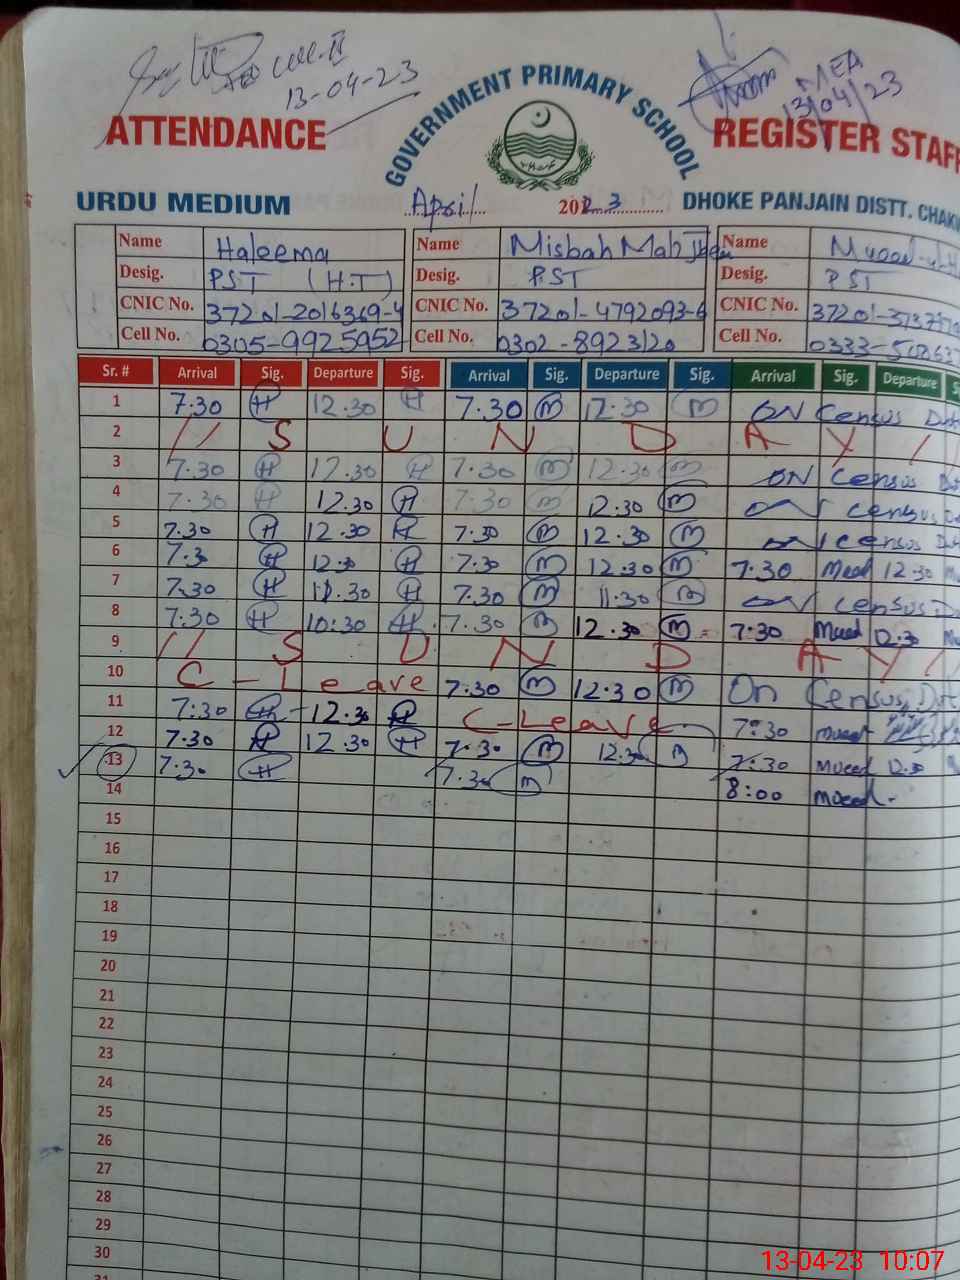 13-04-23
MEA
13/04/23
ATTENDANCE
GOVERNMENT PRIMARY SCHOOL
REGISTER STAFF
URDU MEDIUM
April
2023
DHOKE PANJAIN DISTT. CHAKW
Name Haleema Name Misbah Mah Name
Desig. PST (H.T) Desig. PST Desig. PST
CNIC No. 37201-2016369-4 CNIC No. 37201-4792093-6 CNIC No. 37201-
Cell No. 0305-9925952 Cell No. 0302-8923120 Cell No. 0333-
Sr. # Arrival Sig. Departure Sig. Arrival Sig. Departure Sig. Arrival Sig. Departure
1 7.30 H 12.30 H 7.30 M 12.30 M ON Census
2 // S U N D A Y /
3 7.30 H 12.30 H 7.30 M 12.30 M ON Census
4 7.30 H 12.30 H 7.30 M 12.30 M ON Census
5 7.30 H 12.30 H 7.30 M 12.30 M ON Census
6 7.30 H 12.30 H 7.30 M 12.30 M 7.30 Mueed 12.30
7 7.30 H 11.30 H 7.30 M 11.30 M ON Census
8 7.30 H 10:30 H 7.30 M 12.30 M 7:30 Mueed 12.30
9 // S U N D A Y /
10 C - Leave 7.30 M 12.30 M On Census
11 7:30 H 12.30 H C-Leave 7:30 Mueed
12 7.30 H 12.30 H 7.30 M 12.30 M 7:30 Mueed 12.30
13 7.30 H 7.30 M 8:00 Mueed
14
15
16
17
18
19
20
21
22
23
24
25
26
27
28
29
30
13-04-23 10:07